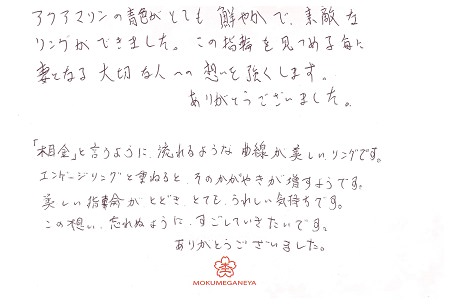 アクアマリンの青色がとても鮮やかで、素敵な
リングができました。この指輪を見つめる毎に
妻となる大切な人への想いを強くします。
ありがとうございました。
「木目金」と言うように、流れるような曲線が美しいリングです。
エンゲージリングと重ねると、そのかがやきが増すようです。
美しい指輪がとどき、とても、うれしい気持ちです。
この想い、忘れぬように、すごしていきたいです。
ありがとうございました。
MOKUMEGANEYA